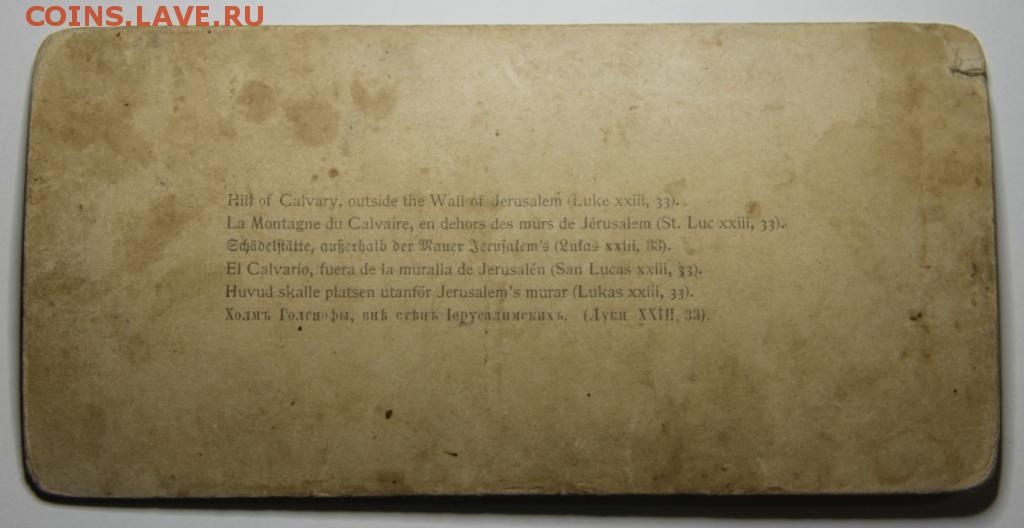 COINS.LAVE.RU
Hill of Calvary, outside the Wall of Jerusalem (Luke xxiii, 33).
La Montagne du Calvaire, en dehors des murs de Jérusalem (St. Luc xxiii, 33).
Schädelstätte, außerhalb der Mauer Jerusalem's (Lukas xxiii, 33).
El Calvario, fuera de la muralla de Jerusalén (San Lucas xxiii, 33).
Huvud skalle platsen utanför Jerusalem's murar (Lukas xxiii, 33).
Холмъ Голгофы, внѣ стѣнъ Іерусалимскихъ. (Луки XXIII, 33).